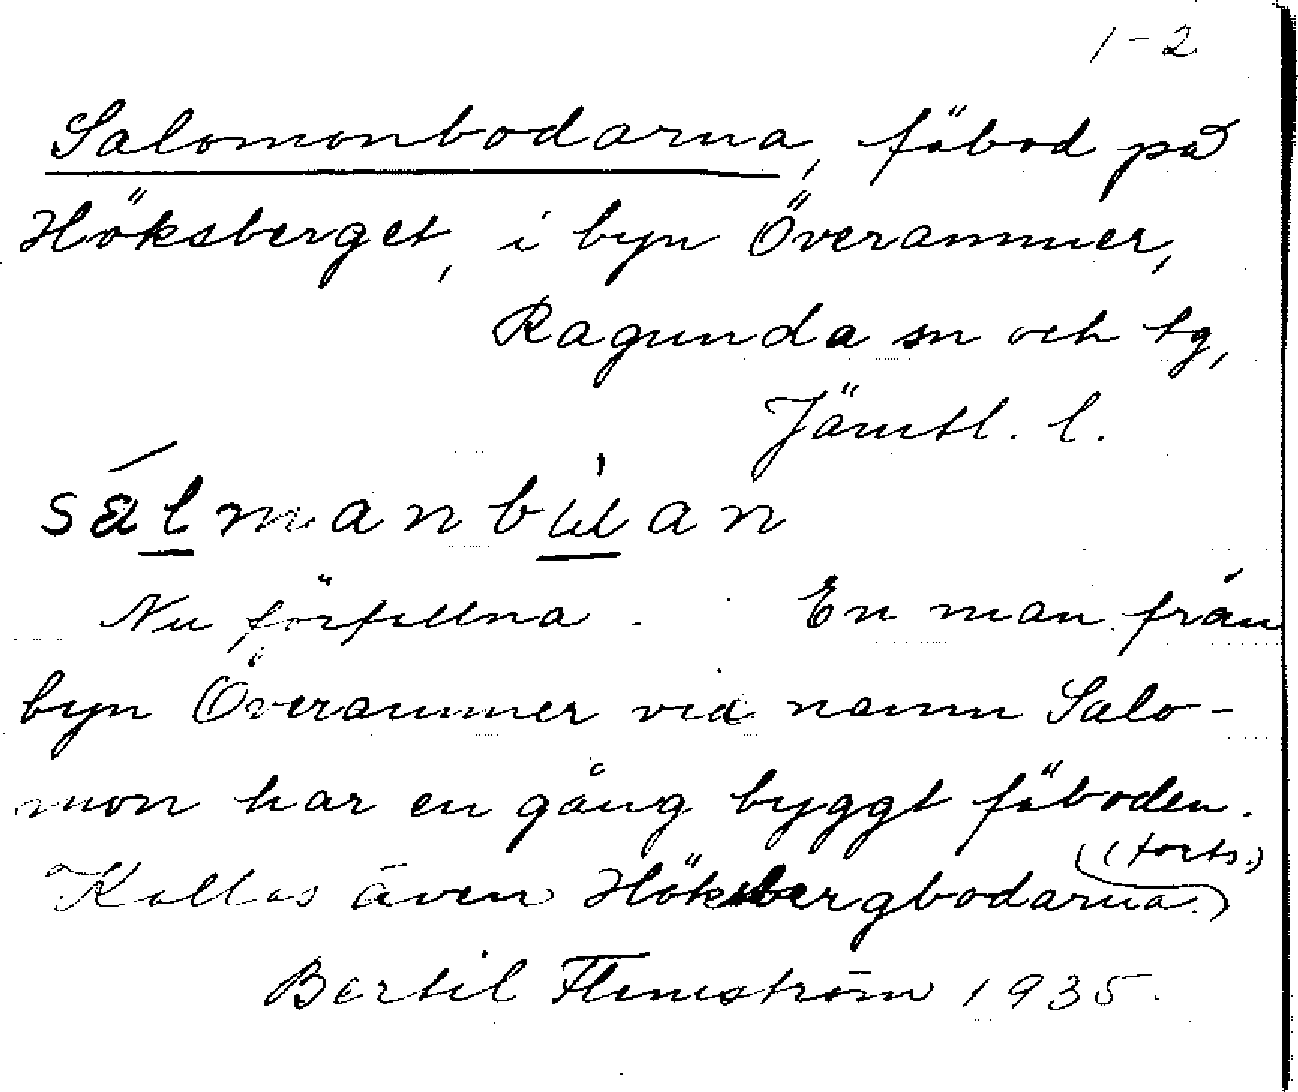 1-2
Salomonbodarna, fäbod på
Höksberget, i byn Överammer,
Ragunda sn och tg,
Jämtl. l.
sálmanbu̇an
Nu förfallna. En man från
byn Överammer vid namn Salo-
mon har en gång byggt fäboden.
(forts.)
Kallas även Höksbergbodarna.
Bertil Flemström 1935.